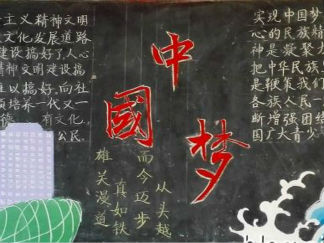 主义精神文明
文化发展道路
建设搞好了,人心
精神文明建设搞
难以搞好,向社
须培养一代又一
有文化、
公民
中國梦
雄关漫道
真如铁
而今迈步
从头越
实现中国梦
心的民族精
神是凝聚
把中华民族
是鞭策我们
各族人民一
断增强团结
国广大青少